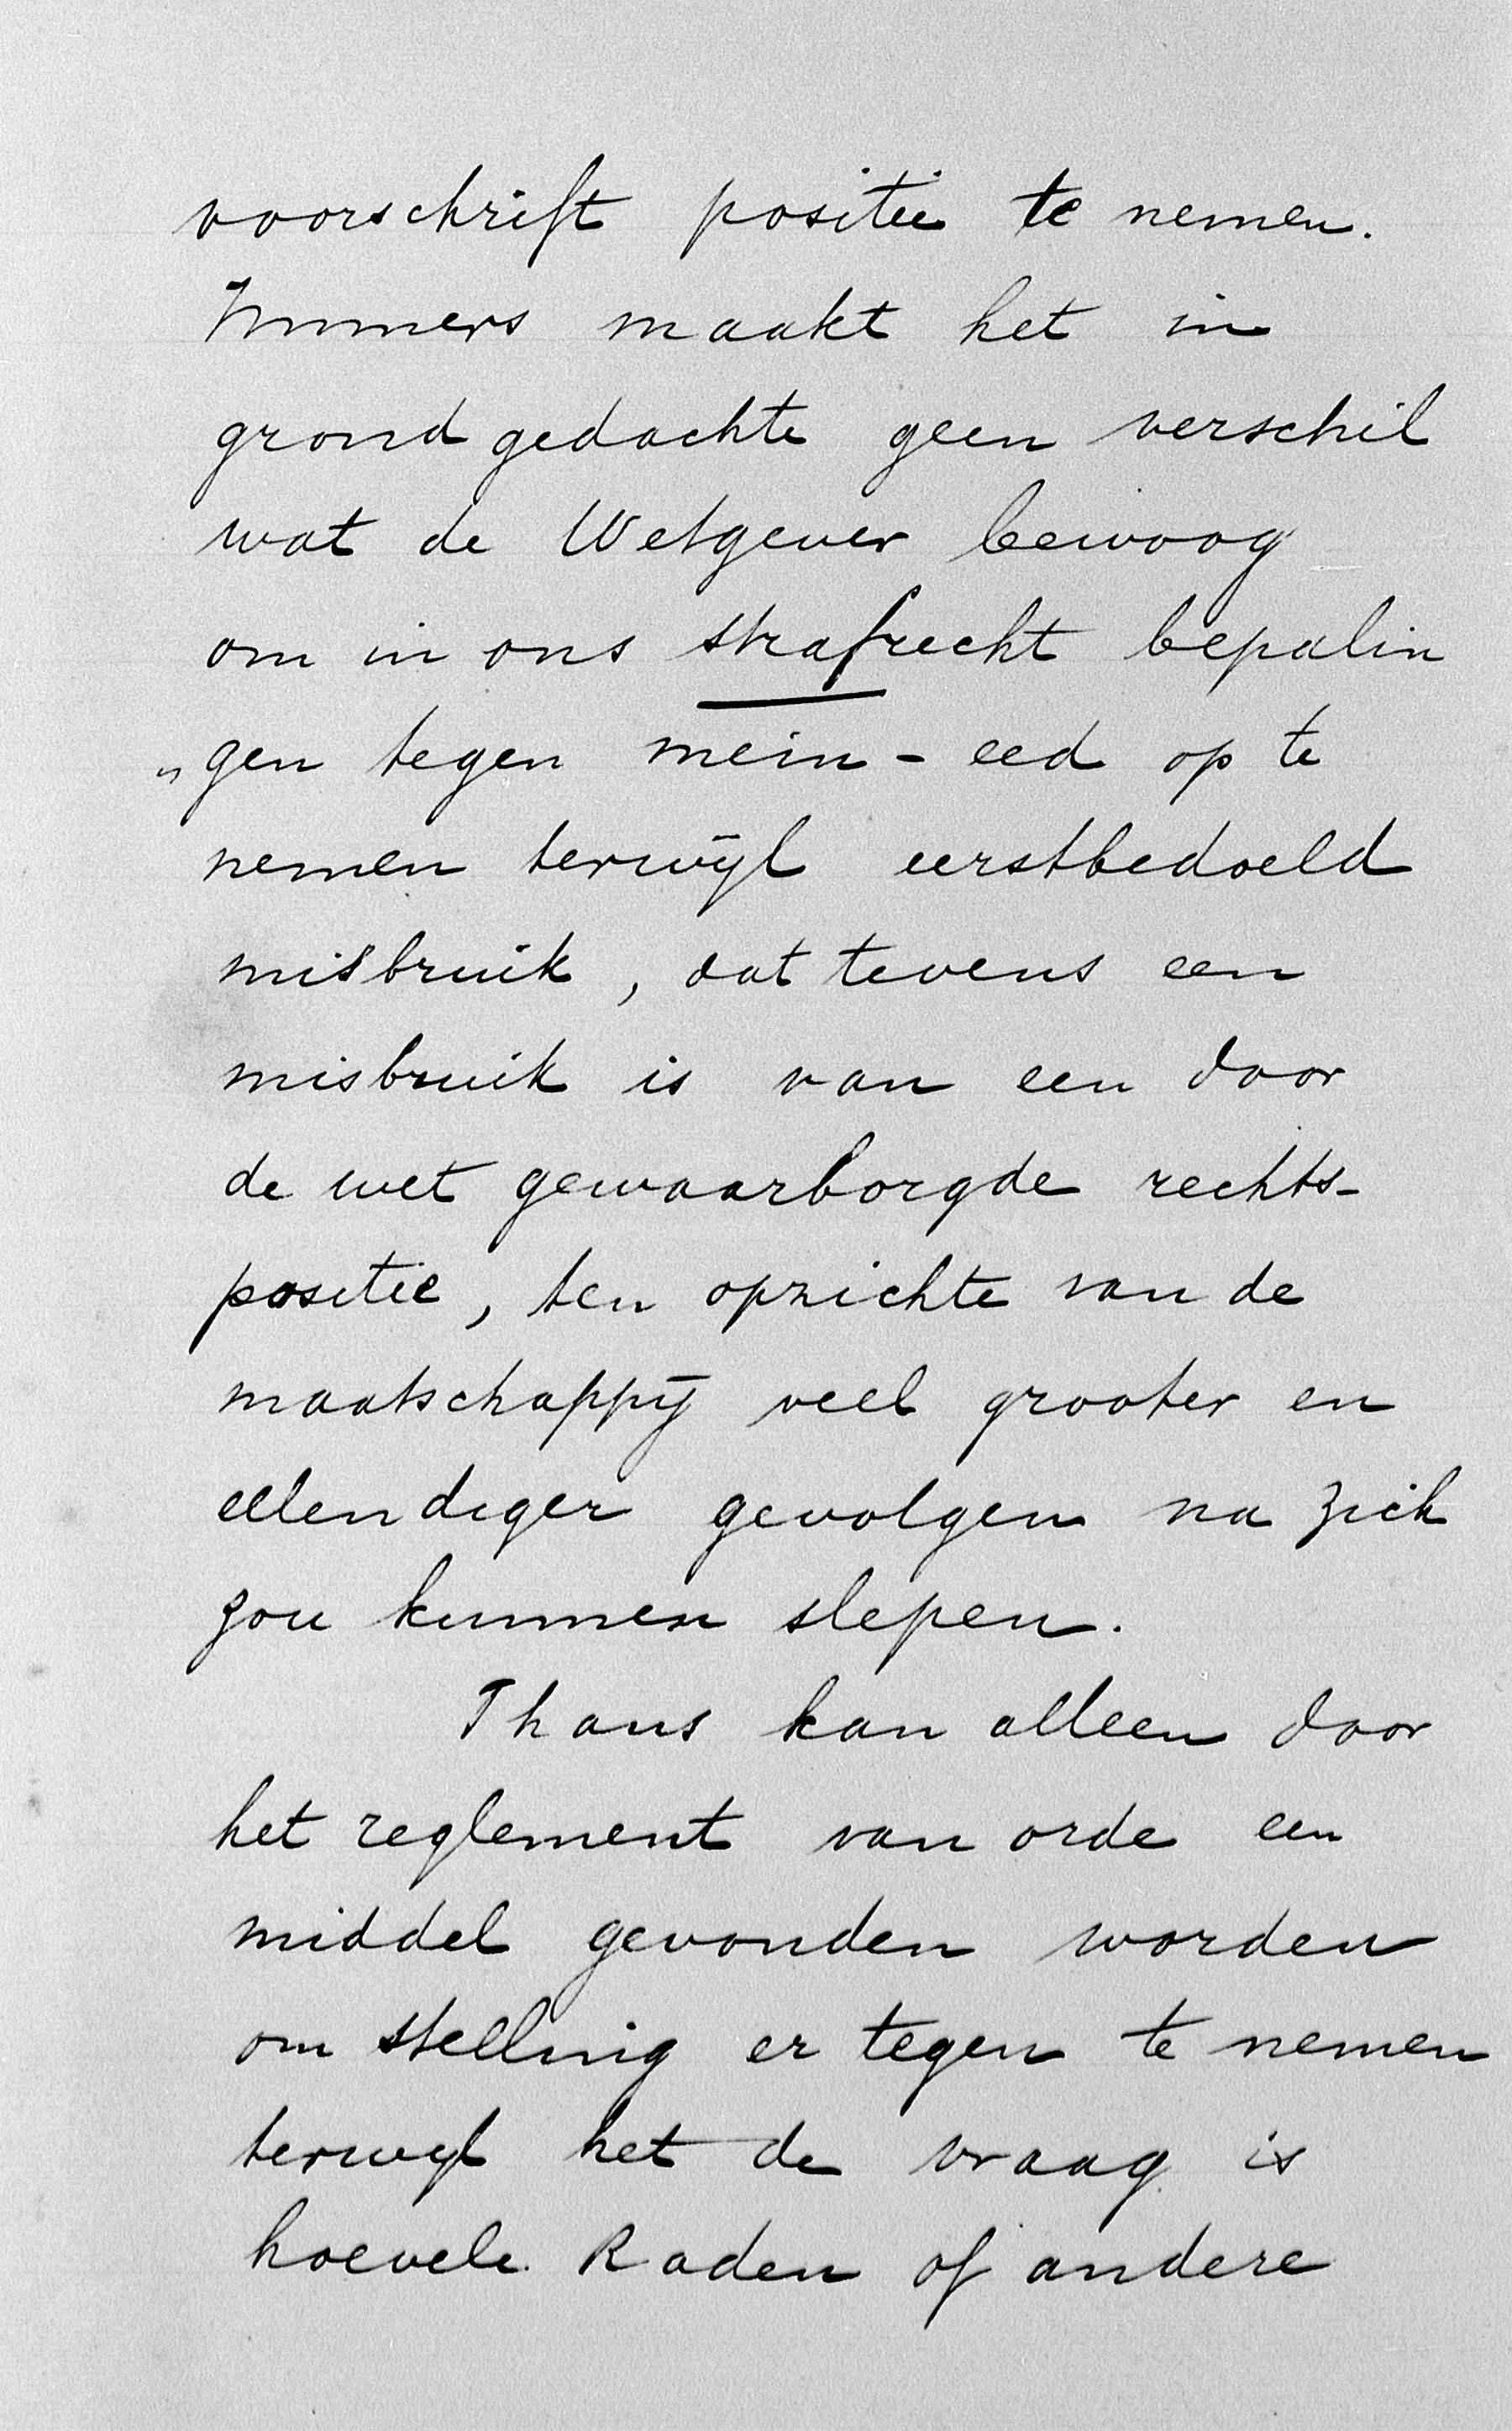 voorschrift positie te nemen.
Immers maakt het in
grond gedachte geen verschil
wat de Wetgever bewoog
om in ons strafrecht bepalin
„gen tegen mein-eed op te
nemen terwijl eerstbedoeld
misbruik, dat tevens een
misbruik is van een door
de wet gewaarborgde rechts-
positie, ten opzichte van de
maatschappij veel grooter en
ellendiger gevolgen na zich
zou kunnen slepen.
Thans kan alleen door
het reglement van orde een
middel gevonden worden
om stelling er tegen te nemen
terwijl het de vraag is
hoevele Raden of andere